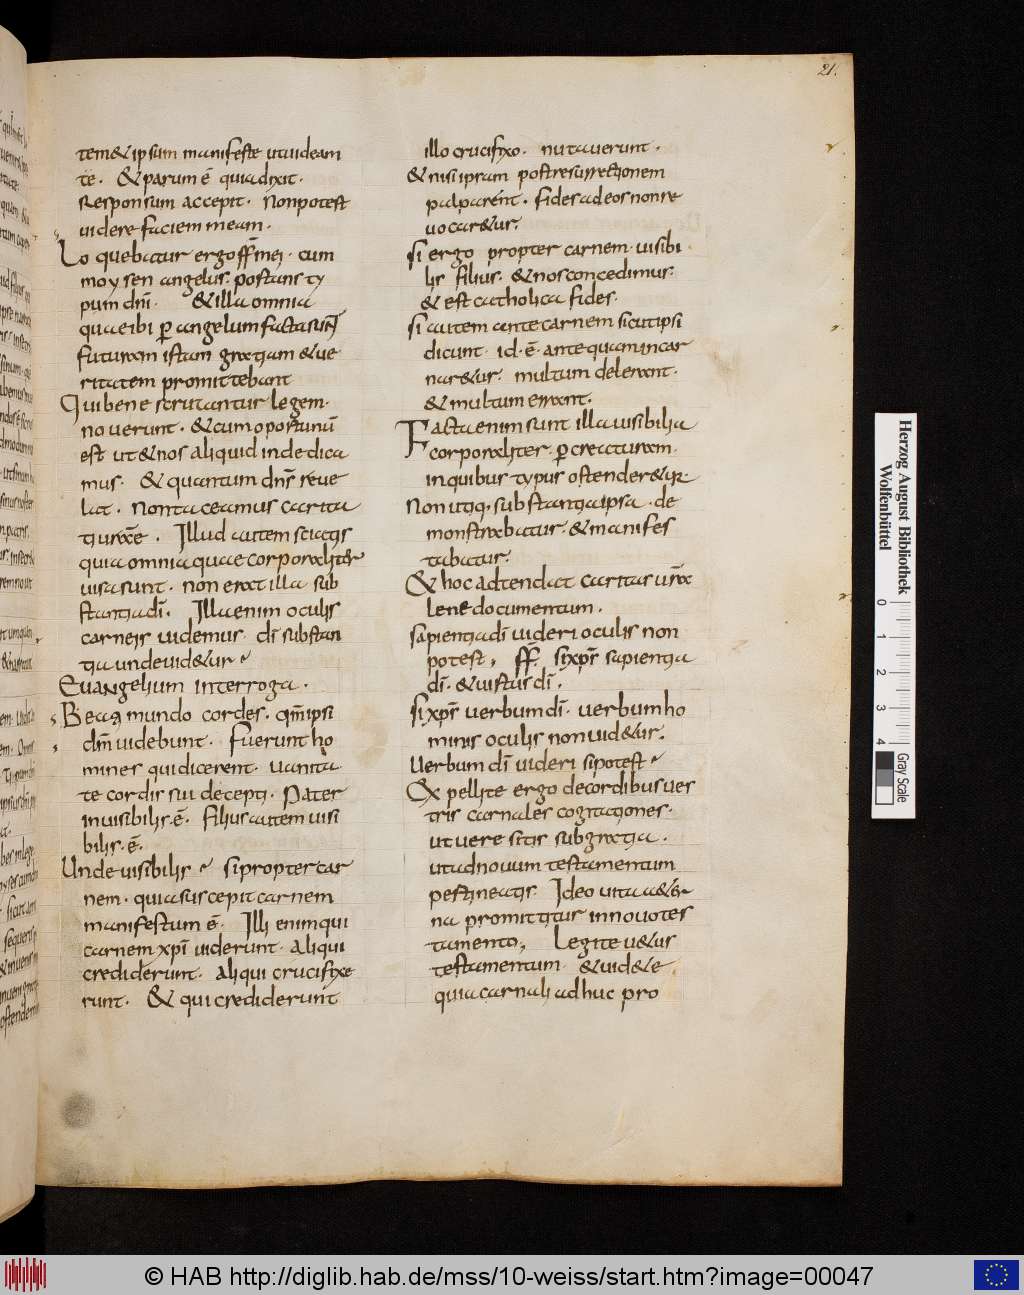 21.
tem & ipsum manifeste utuideam
te. & parum ē quia dixit.
Responsum accepit. Non potest
uidere faciem meam.
Loquebatur ergo ff mei. cum
moysen angelus. portans ty
pum dnī. & illa omnia
quae ibi ꝑ angelum facta sunt
futuram istam gratiam & ue
ritatem promittebant
Qui bene scrutantur legem.
nouerunt. & cum oportunū
est ut & nos aliquid inde dica
mus. & quantum dns̄ reue
lat. non taceamus carita
ti urae̅. Illud autem sciatis
quia omnia quae corporaliter
uisa sunt. non erat illa sub
stantia dī. Illa enim oculis
carneis uidemus. dī substan
tia unde uid&ur
Euangelium interroga.
Beati mundo cordes. qm̄ ipsi
dm̄ uidebunt. Fuerunt ho
mines qui dicerent. uanita
te cordis sui decepti. Pater
inuisibilis ē. Filius autem uisi
bilis. ē.
Unde uisibilis si propter car
nem. quia suscepit carnem
manifestum ē. Illi enim qui
carnem xp̄i uiderunt. aliqui
crediderunt. aliqui crucifixe
runt. & qui crediderunt
illo crucifixo. nutauerunt.
& nisi ipsam post resurrectionem
palparent. fides ad eos non re
uocar&ur.
si ergo propter carnem. uisibi
lis filius. & nos concedimus.
& est catholica fides.
si autem ante carnem sicut ipsi
dicunt. id. ē. ante quam incar
nar&ur. multum delerant.
& multum errant.
Facta enim sunt illa uisibilia
corporaliter. ꝑ creaturam.
in quibus typus ostender&ur.
Non utiq. substantia ipsa. de
monstrabatur. & manifes
tabatur.
& hoc adtendat caritas urā
lene documentum.
sapientia dī uideri oculis non
potest, ff. si xps̄ sapientia
dī. & uirtus dī.
si xps̄ uerbum dī. uerbum ho
minis oculis non uid&ur.
Uerbum dī uideri sic potest
Expellite ergo de cordibus ues
tris carnales cogitationes.
ut uere sitis sub gratia.
ut ad nouum testamentum
pertineatis. Ideo uita a&er
na promittitur in nouo tes
tamento, Legite u&us
testamentum. & uid&e
quia carnali adhuc pro
Herzog August Bibliothek
Wolfenbüttel
0 1 2 3 4
Gray Scale
© HAB http://diglib.hab.de/mss/10-weiss/start.htm?image=00047